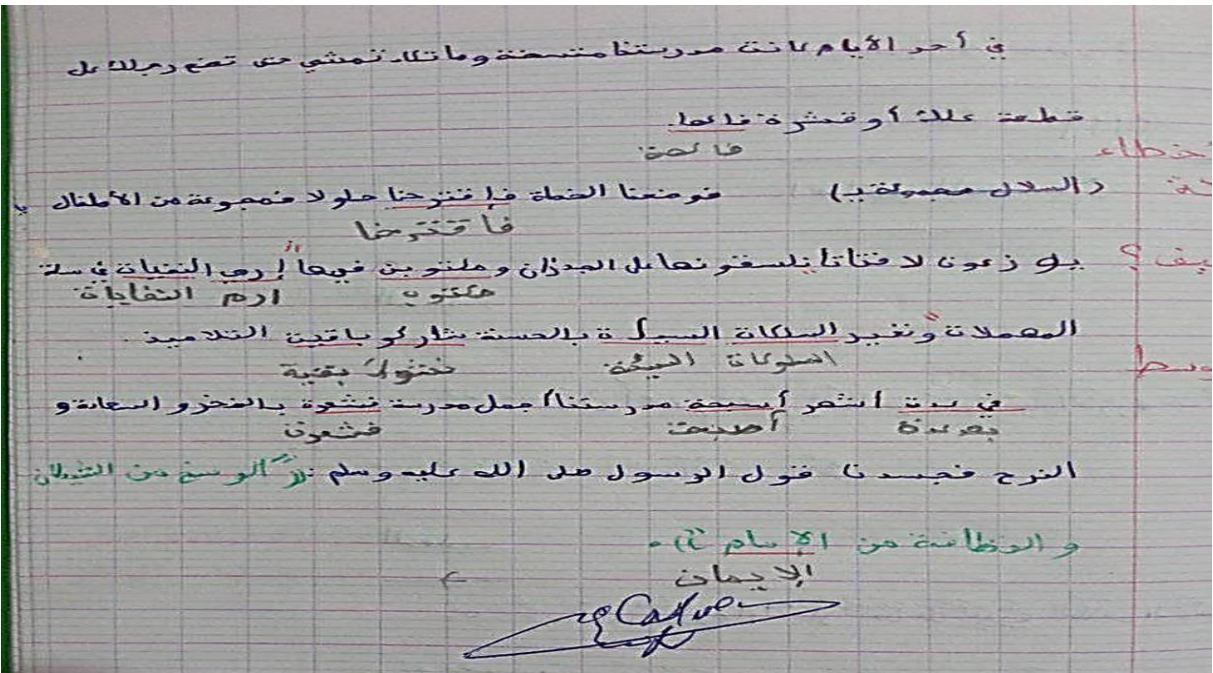 في أحد الأيام كانت مدرستنا متسخة وما تكاد تمشي حتى تضع رجلك على
قطعة علك أو قشرة فاكها.
فاكهة
أخطاء
(السلال مجموعة بـ) فوضعنا الخطة فإقترحنا حلولا فمجموعة من الأطفال
فاقترحنا
يوزعون لافتات يلسقونها على الجدران و ملتوبن فيها "إرمي النفيات في سلة
مكتوب ارم النفايات
المهملات" ونغير السلكات السيأة بالحسنة شاركو باقيت التلاميذ.
السلوكات السيئة بقية
في مدت أشهر أسبحة مدرستنا أجمل مدرسة فشعرة بالفخر و السعادة و
بعد مدة أصبحت فشعرت
الفرح فجسدنا قول الرسول صلى الله عليه وسلم "الوسخ من الشيطان
و النظافة من الإمام".
الإيمان